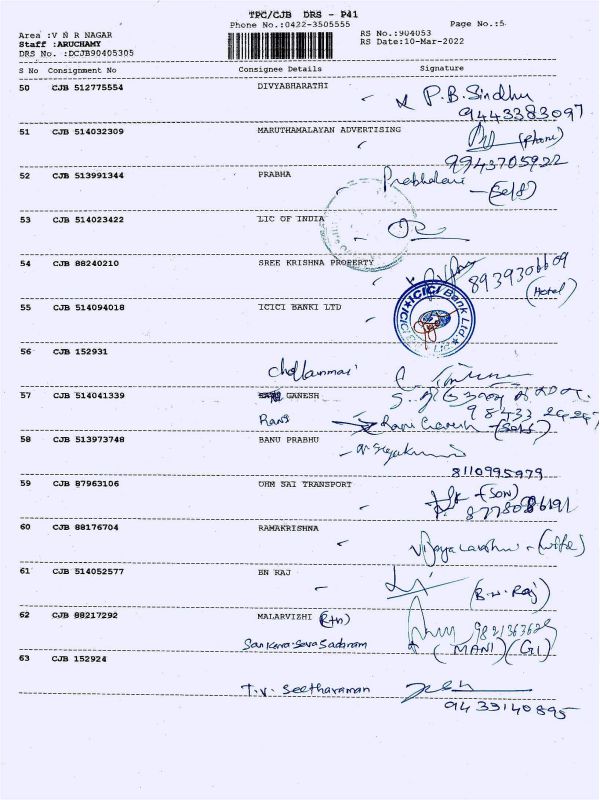 TPC/CJB DRS - P41
Phone No.:0422-3505555
Page No.:5
Area :V N R NAGAR
RS No.:904053
Staff :ARUCHAMY
RS Date:10-Mar-2022
DRS No. :DCJB90405305
S No Consignment No Consignee Details Signature
50 CJB 512775554 DIVYABHARATHI
P.B.Sindhu
9443383097
51 CJB 514032309 MARUTHAMALAYAN ADVERTISING
(Phone)
9943705922
52 CJB 513991344 PRABHA
(Self)
53 CJB 514023422 LIC OF INDIA
54 CJB 88240210 SREE KRISHNA PROPERTY
8939306609
(Hotel)
55 CJB 514094018 ICICI BANKI LTD
ICICI Bank Ltd.
56 CJB 152931
Chellammai
57 CJB 514041339 GANESH
Rani
(Self)
58 CJB 513973748 BANU PRABHU
8110995979
59 CJB 87963106 OHM SAI TRANSPORT
(SON)
60 CJB 88176704 RAMAKRISHNA
(wife)
61 CJB 514052577 BN RAJ
(B.N. Raj)
62 CJB 88217292 MALARVIZHI (Rtn)
Sankara Seva Sadanam
(MANI)
63 CJB 152924
T.V. Seetharaman
9433140895